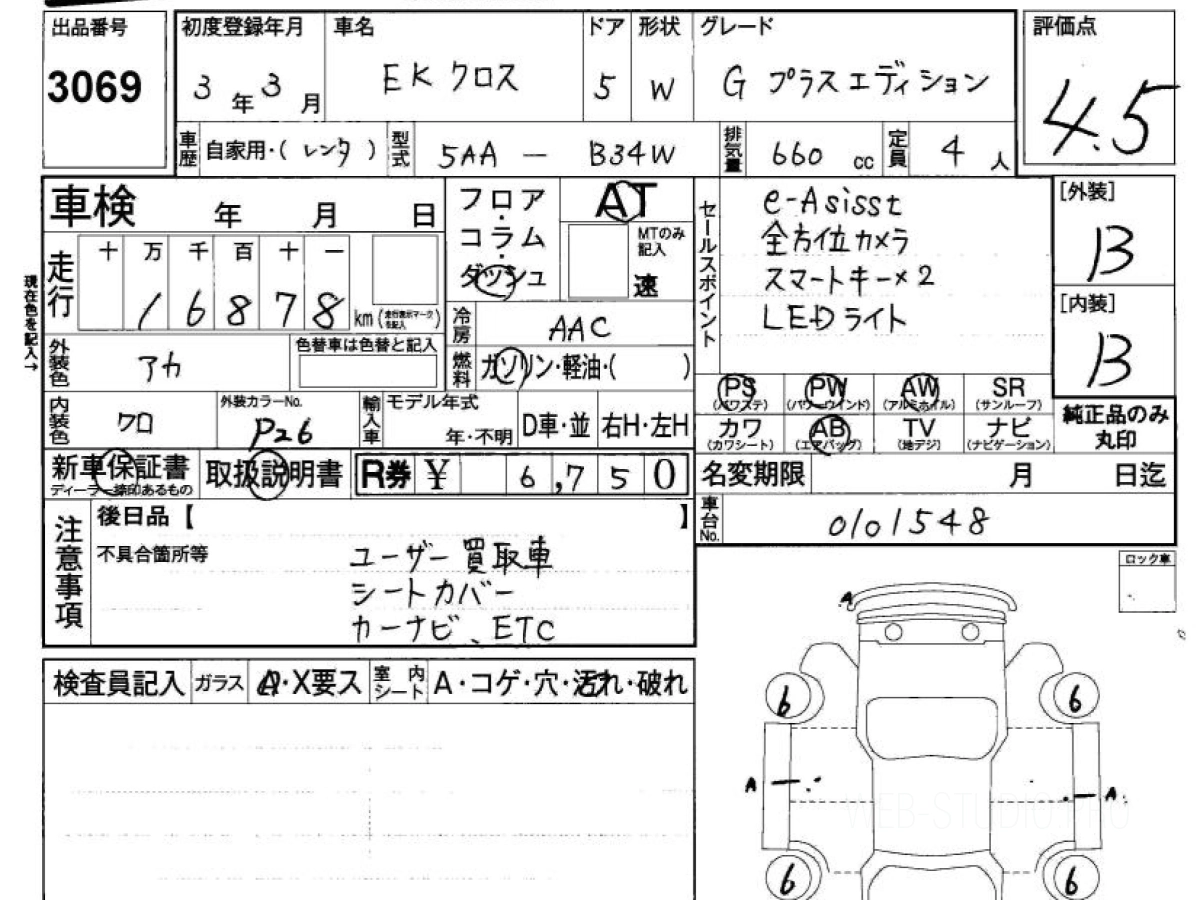 出品番号 初度登録年月 車名 ドア 形状 グレード 評価点
3069 3年3月 EKクロス 5 W G プラスエディション 4.5
車歴 自家用・( レンタ ) 型式 5AA - B34W 排気量 660 cc 定員 4 人
車検 年 月 日
フロア・コラム・ダッシュ
AT
MTのみ記入
速
セールスポイント
e-Asisst
全方位カメラ
スマートキー×2
LEDライト
[外装]
B
[内装]
B
現在色を記入→
走行 十 万 千 百 十 一
1 6 8 7 8 km (走行表示マークを記入)
冷房 AAC
燃料 ガソリン・軽油・( )
外装色 アカ 色替車は色替と記入
内装色 クロ 外装カラーNo. P26
輸入車 モデル年式 年・不明 D車・並 右H・左H
PS (パワステ) PW (パワーウインド) AW (アルミホイル) SR (サンルーフ)
カワ (カワシート) AB (エアバッグ) TV (地デジ) ナビ (ナビゲーション)
純正品のみ丸印
新車保証書 ディーラー捺印あるもの 取扱説明書 R券 ¥ 6,750
名変期限 月 日迄
車台No. 0101548
注意事項
後日品【 】
不具合箇所等
ユーザー買取車
シートカバー
カーナビ、ETC
ロック車
検査員記入 ガラス A・X要ス 室内シート A・コゲ・穴・汚れ・破れ
A
6 6
A A
6 6
WEB-STUDIO.PRO